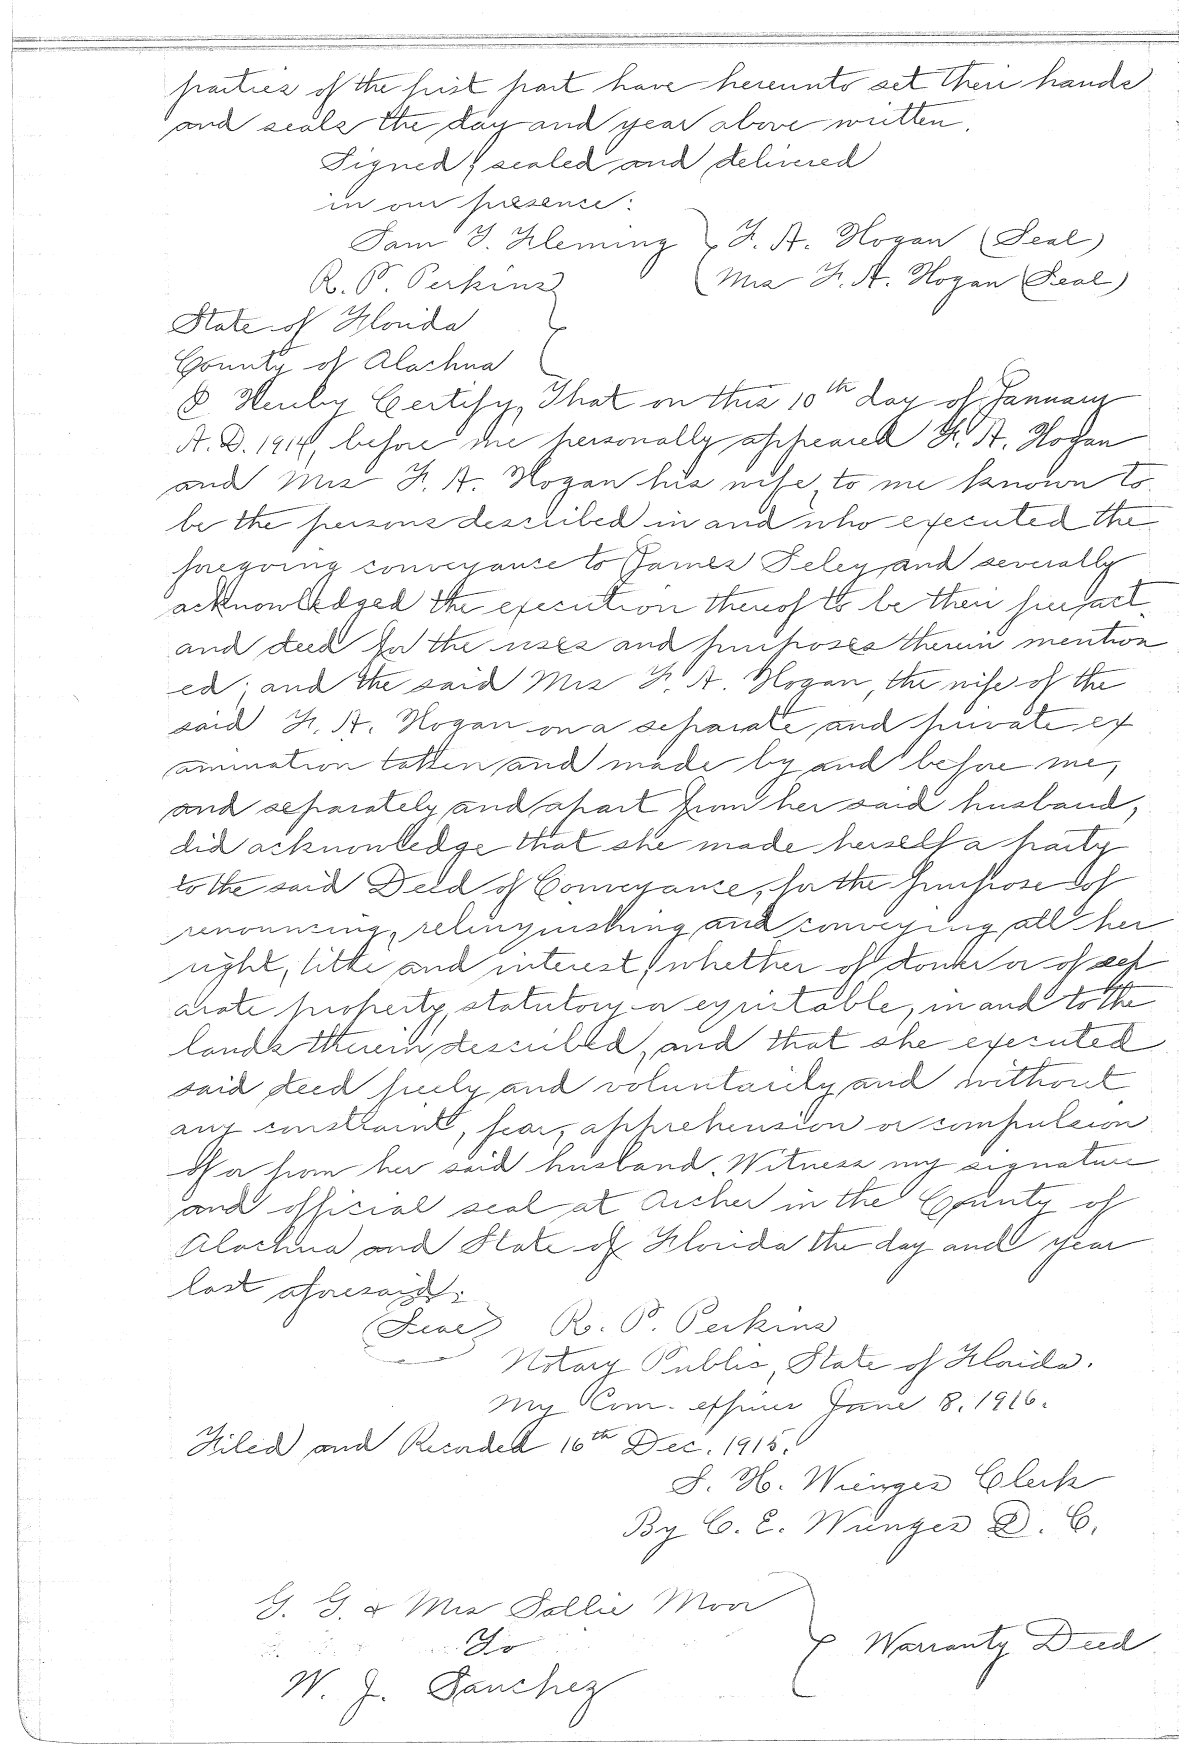 parties of the first part have hereunto set their hands
and seals the day and year above written.
Signed, sealed and delivered
in our presence:
Sam T. Fleming } F. A. Hogan (Seal)
R. P. Perkins } Mrs F. A. Hogan (Seal)
State of Florida }
County of Alachua }
I Hereby Certify, That on this 10th day of January
A. D. 1914, before me personally appeared F. A. Hogan
and Mrs F. A. Hogan his wife, to me known to
be the persons described in and who executed the
foregoing conveyance to James Seley and severally
acknowledged the execution thereof to be their free act
and deed for the uses and purposes therein mention
ed; and the said Mrs F. A. Hogan, the wife of the
said F. A. Hogan on a separate and private ex
amination taken and made by and before me,
and separately and apart from her said husband,
did acknowledge that she made herself a party
to the said Deed of Conveyance, for the purpose of
renouncing, relinquishing and conveying all her
right, title and interest, whether of dower or of sep
arate property, statutory or equitable, in and to the
lands therein described, and that she executed
said deed freely and voluntarily and without
any constraint, fear, apprehension or compulsion
of or from her said husband. Witness my signature
and official seal at Archer in the County of
Alachua and State of Florida the day and year
last aforesaid.
(Seal) R. P. Perkins
Notary Public, State of Florida.
My Com. expires June 8, 1916.
Filed and Recorded 16th Dec. 1915.
S. H. Wienges Clerk
By C. E. Wienges D. C.
G. G. & Mrs Sallie Moor
To } Warranty Deed
W. J. Sanchez